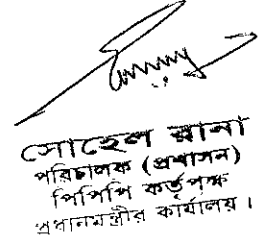 সোহেল রানা
পরিচালক (প্রশাসন)
পিপিপি কর্তৃপক্ষ
প্রধানমন্ত্রীর কার্যালয়।